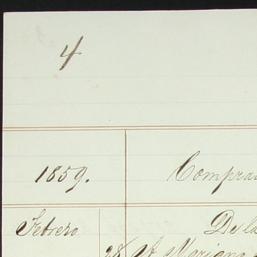 4
1859. Compra
Febrero De la
28 A Mariano